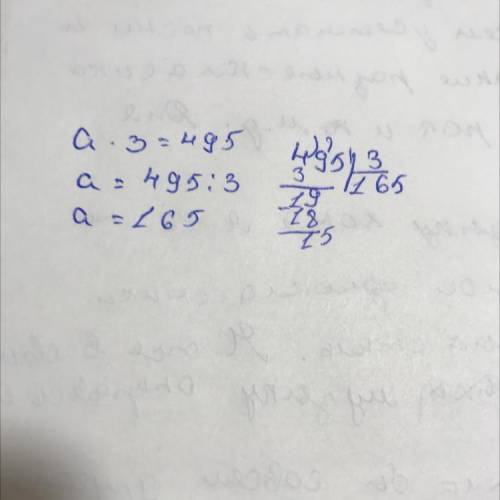 a · 3 = 495
a = 495 : 3
a = 165
495 3
3 165
19
18
15